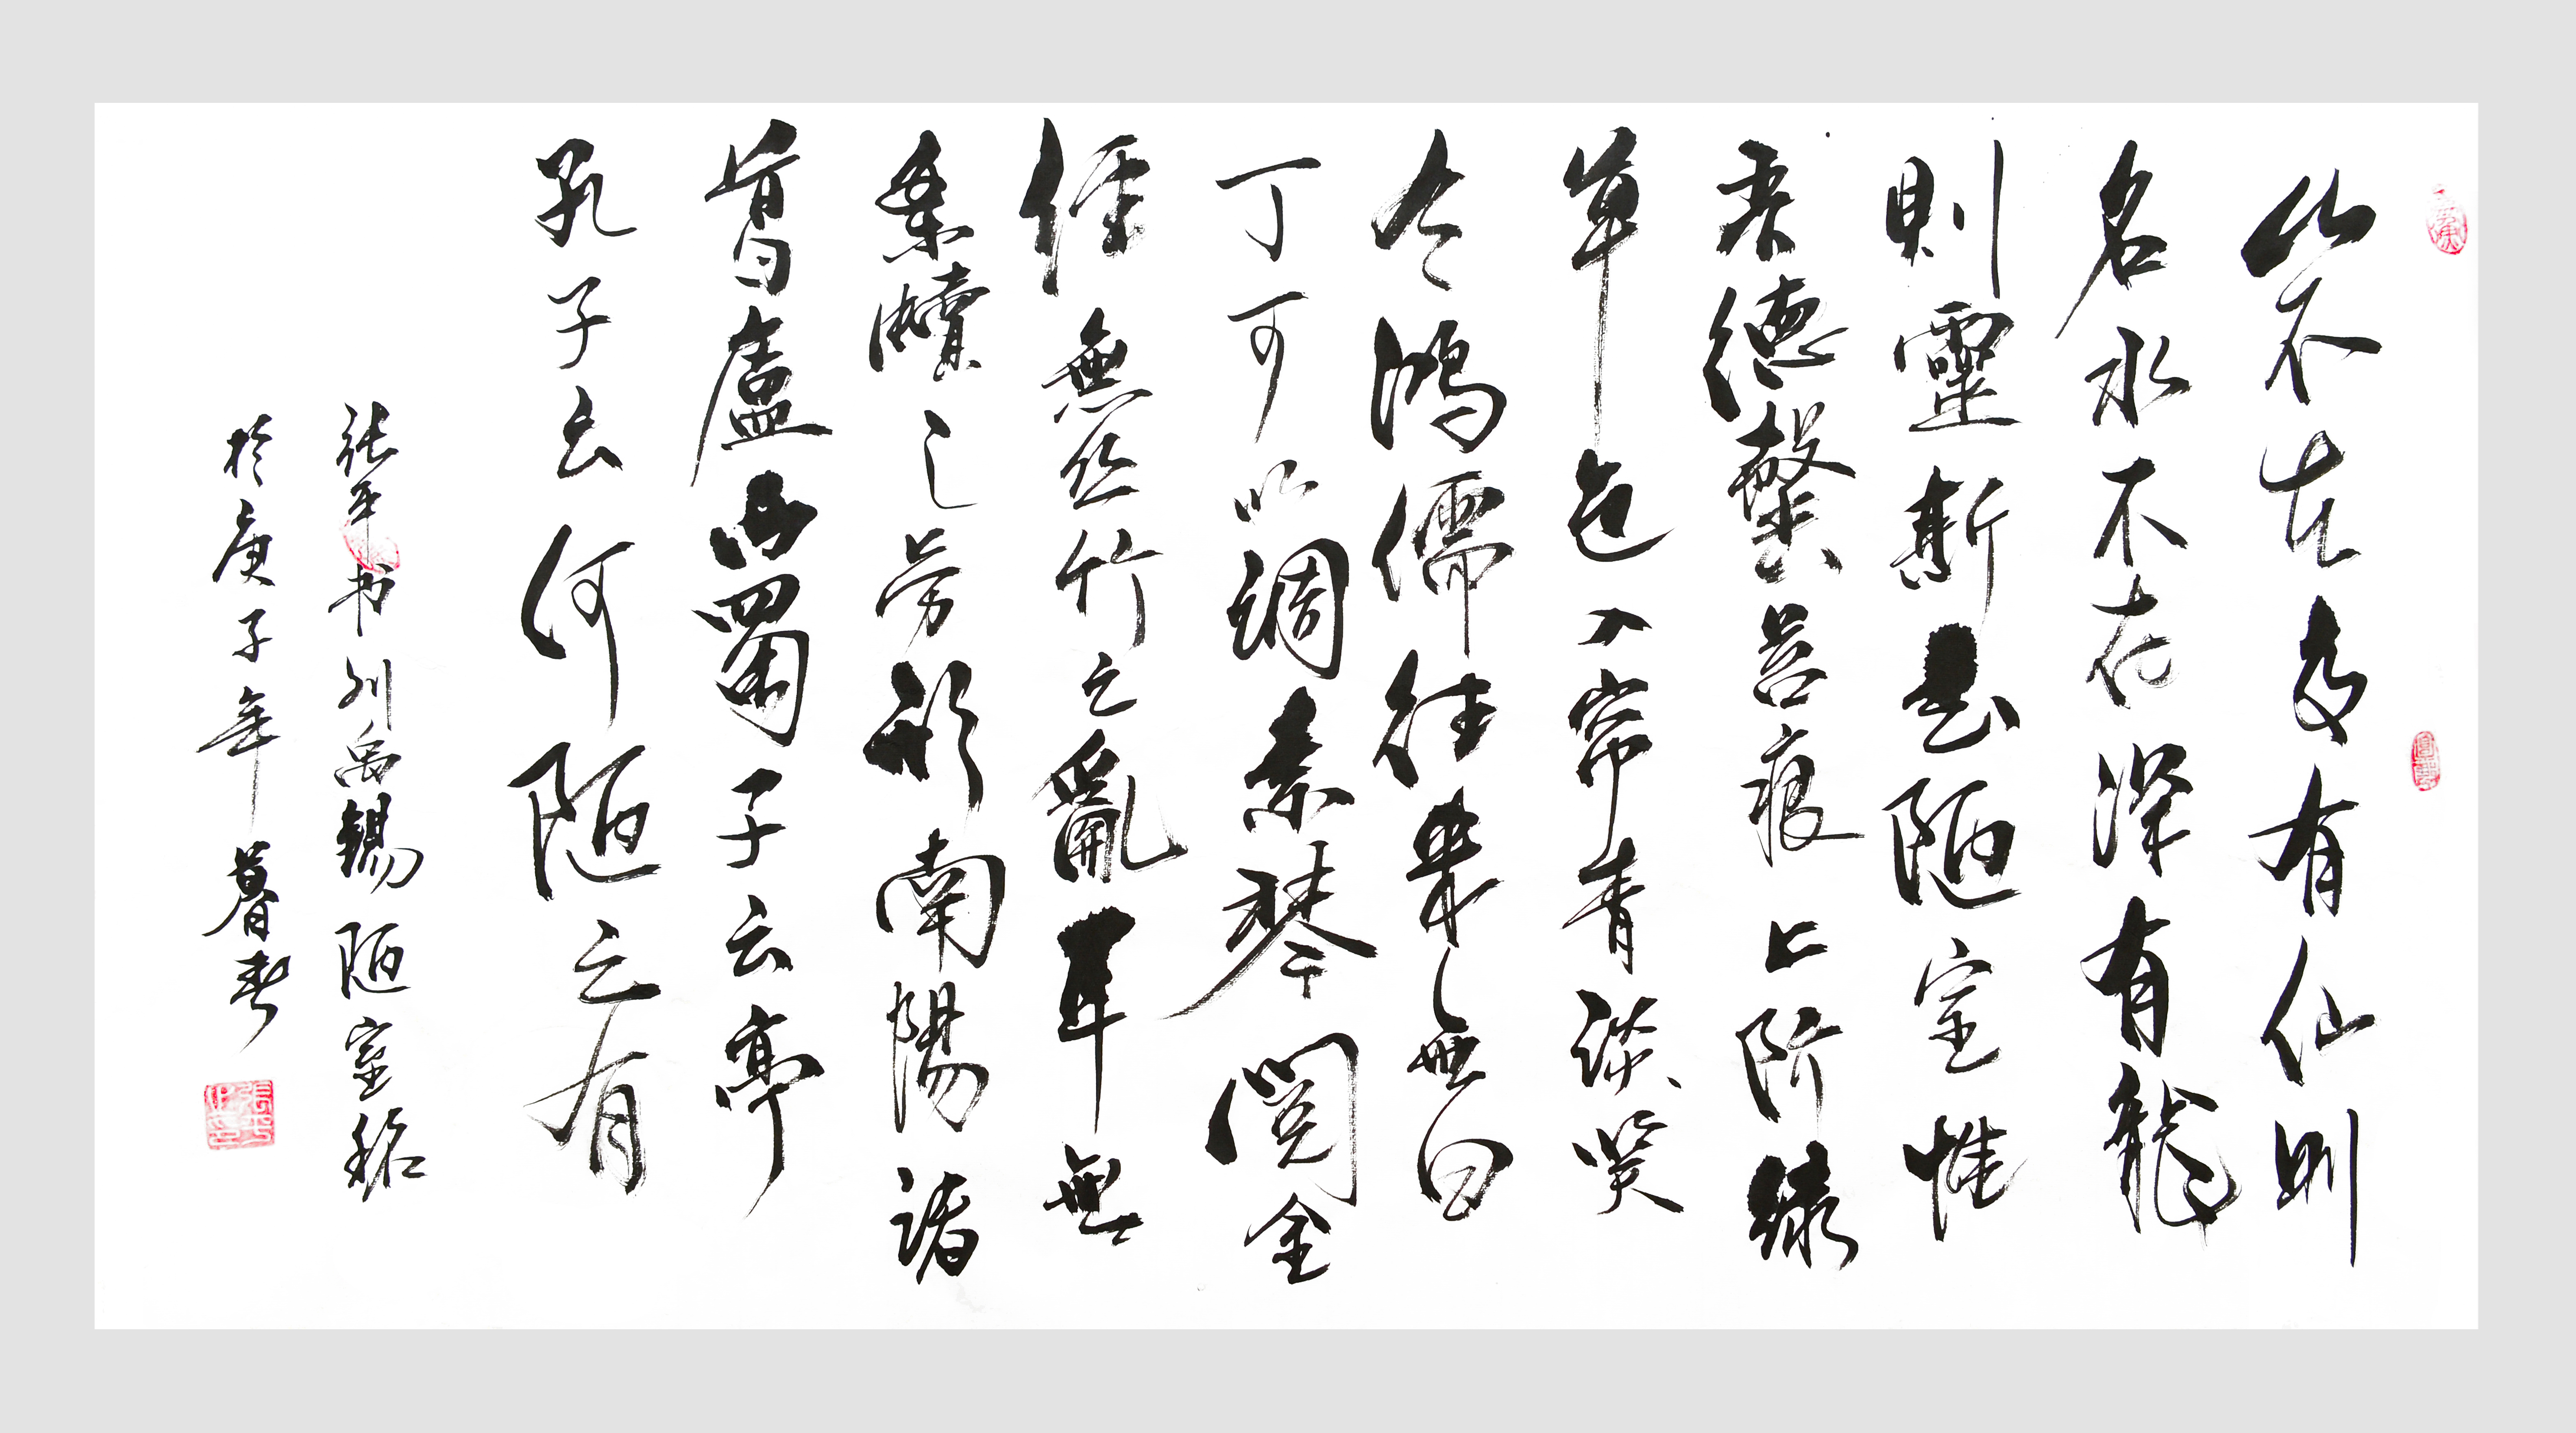 山不在高有仙則
名水不在深有龍
則靈斯是陋室惟
吾德馨苔痕上阶綠
草色入帘青談笑
有鴻儒往來無白
丁可以調素琴閱金
經無丝竹之亂耳無
案牘之劳形南陽諸
葛廬西蜀子云亭
孔子云何陋之有
张平书刘禹錫陋室銘
於庚子年暮春